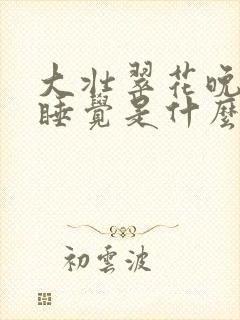 大壯翠花晚
睡覺是什麼
初雲波